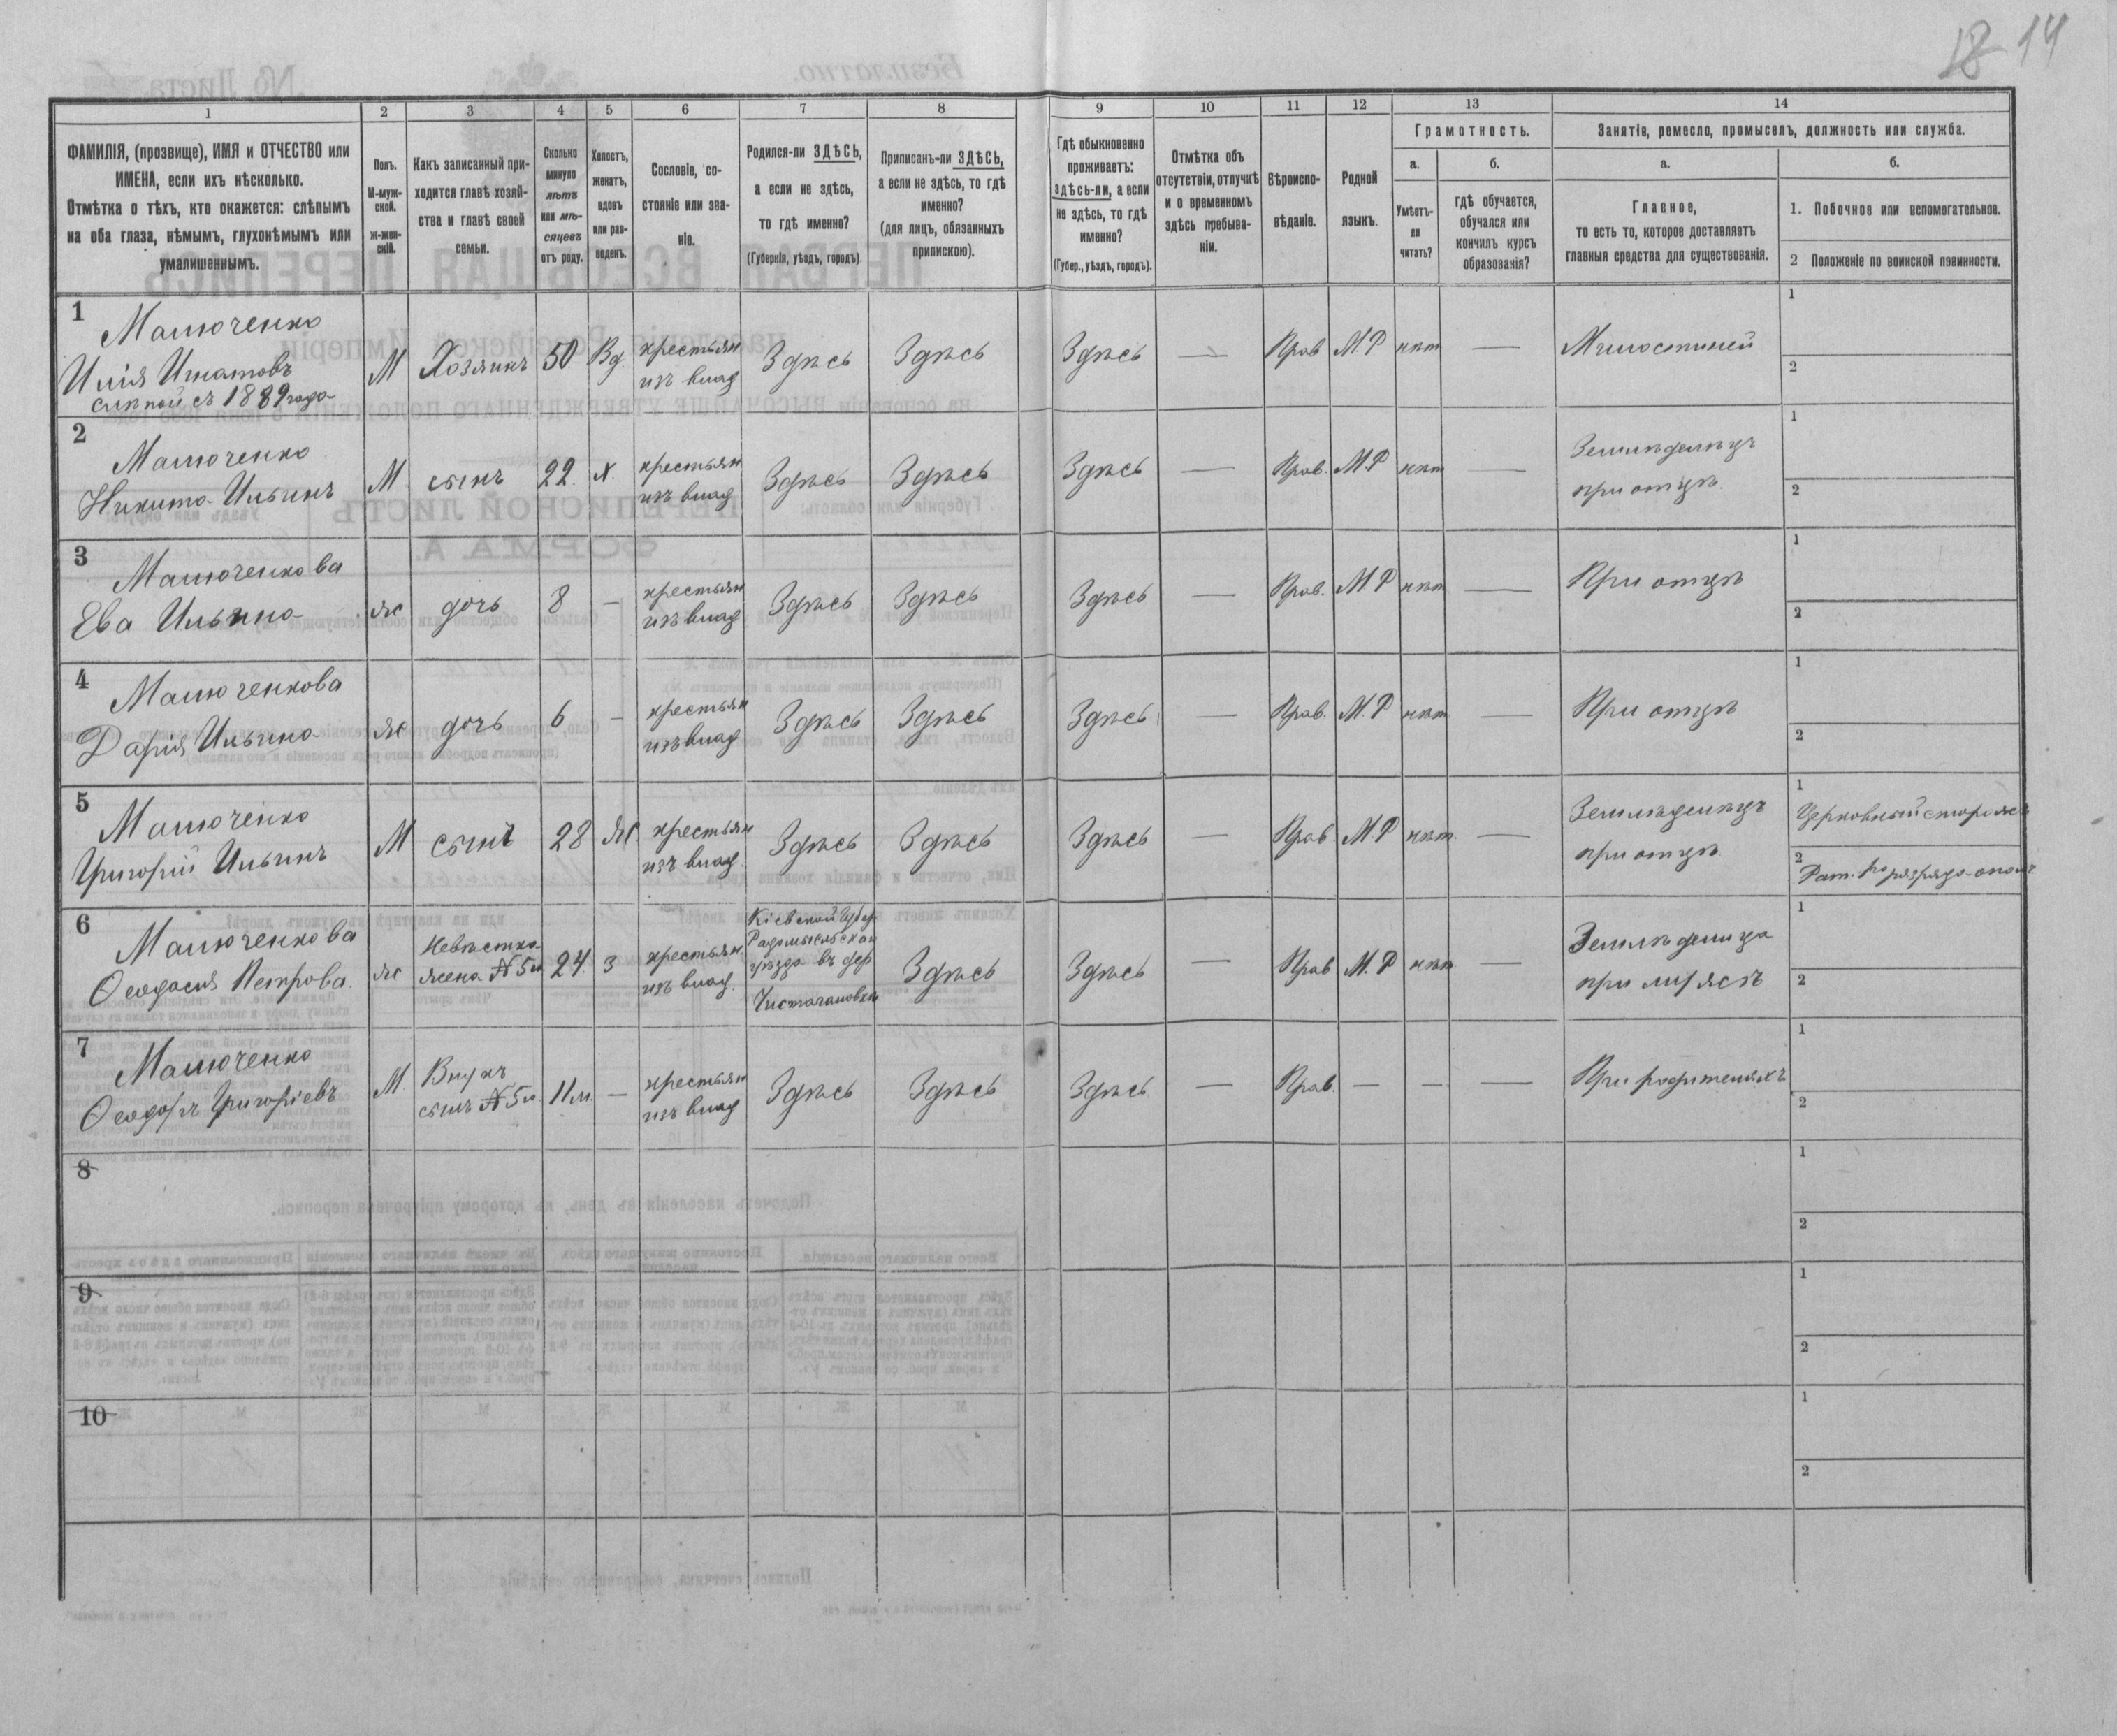 18 14
1 2 3 4 5 6 7 8 9 10 11 12 13 14
ФАМИЛІЯ, (прозвище), ИМЯ и ОТЧЕСТВО или
ИМЕНА, если ихъ нѣсколько.
Отмѣтка о тѣхъ, кто окажется: слѣпымъ
на оба глаза, нѣмымъ, глухонѣмымъ или
умалишеннымъ.
Полъ.
М-муж-
ской.
Ж-жен-
скій.
Какъ записанный при-
ходится главѣ хозяй-
ства и главѣ своей
семьи.
Сколько
минуло
лѣтъ
или мѣ-
сяцевъ
отъ роду.
Холостъ,
женатъ,
вдовъ
или раз-
веденъ.
Сословіе, со-
стояніе или зва-
ніе.
Родился-ли ЗДѢСЬ,
а если не здѣсь,
то гдѣ именно?
(Губернія, уѣздъ, городъ).
Приписанъ-ли ЗДѢСЬ,
а если не здѣсь, то гдѣ
именно?
(для лицъ, обязанныхъ
припискою).
Гдѣ обыкновенно
проживаетъ:
здѣсь-ли, а если
не здѣсь, то гдѣ
именно?
(Губер., уѣздъ, городъ).
Отмѣтка объ
отсутствіи, отлучкѣ
и о временномъ
здѣсь пребыва-
ніи.
Вѣроиспо-
вѣданіе.
Родной
языкъ.
Грамотность.
а. б.
Умѣетъ-
ли
читать?
гдѣ обучается,
обучался или
кончилъ курсъ
образованія?
Занятіе, ремесло, промыселъ, должность или служба.
а. б.
Главное,
то есть то, которое доставляетъ
главныя средства для существованія.
1. Побочное или вспомогательное.
2 Положеніе по воинской повинности.
1 Малюченко
Илія Игнатовъ
слѣпой съ 1889 года
М Хозяинъ 50 Вд. крестьян
изъ влад Здѣсь Здѣсь Здѣсь — Прав М.Р нѣт — Милостиней
1
2
2 Малюченко
Никита Ильинъ
М сынъ 22. Х. крестьян
изъ влад Здѣсь Здѣсь Здѣсь — Прав. М.Р нѣт — Земледѣлецъ
при отцѣ.
1
2
3 Малюченкова
Ева Ильина
ж дочь 8 — крестьян
изъ влад Здѣсь Здѣсь Здѣсь — Прав. М Р нѣт — При отцѣ
1
2
4 Малюченкова
Дарія Ильина
ж дочь 6 — крестьян
изъ влад Здѣсь Здѣсь Здѣсь — Прав. М.Р нѣт — При отцѣ
1
2
5 Малюченко
Григорій Ильинъ
М сынъ 28 Ж. крестьян
изъ влад. Здѣсь Здѣсь Здѣсь — Прав М Р нѣт. — Земледѣлецъ
при отцѣ
1 Церковный сторож
2 Рат. 1го разряда ополч
6 Малюченкова
Ѳеодосия Петрова.
ж Невѣстка
жена №5го 24. З крестьян.
изъ влад.
Кіевской Губер
Радомысльскаго
уѣзда въ дер
Здѣсь Здѣсь — Прав М.Р нѣт — Земледѣлица
при мужѣ
1
2
7 Малюченко
Ѳеодоръ Григоріевъ
М. Внукъ
сынъ №5го 11 м. — крестьян
изъ влад Здѣсь Здѣсь Здѣсь — Прав. — — — При родителяхъ
1
2
8
1
2
9
1
2
10
1
2